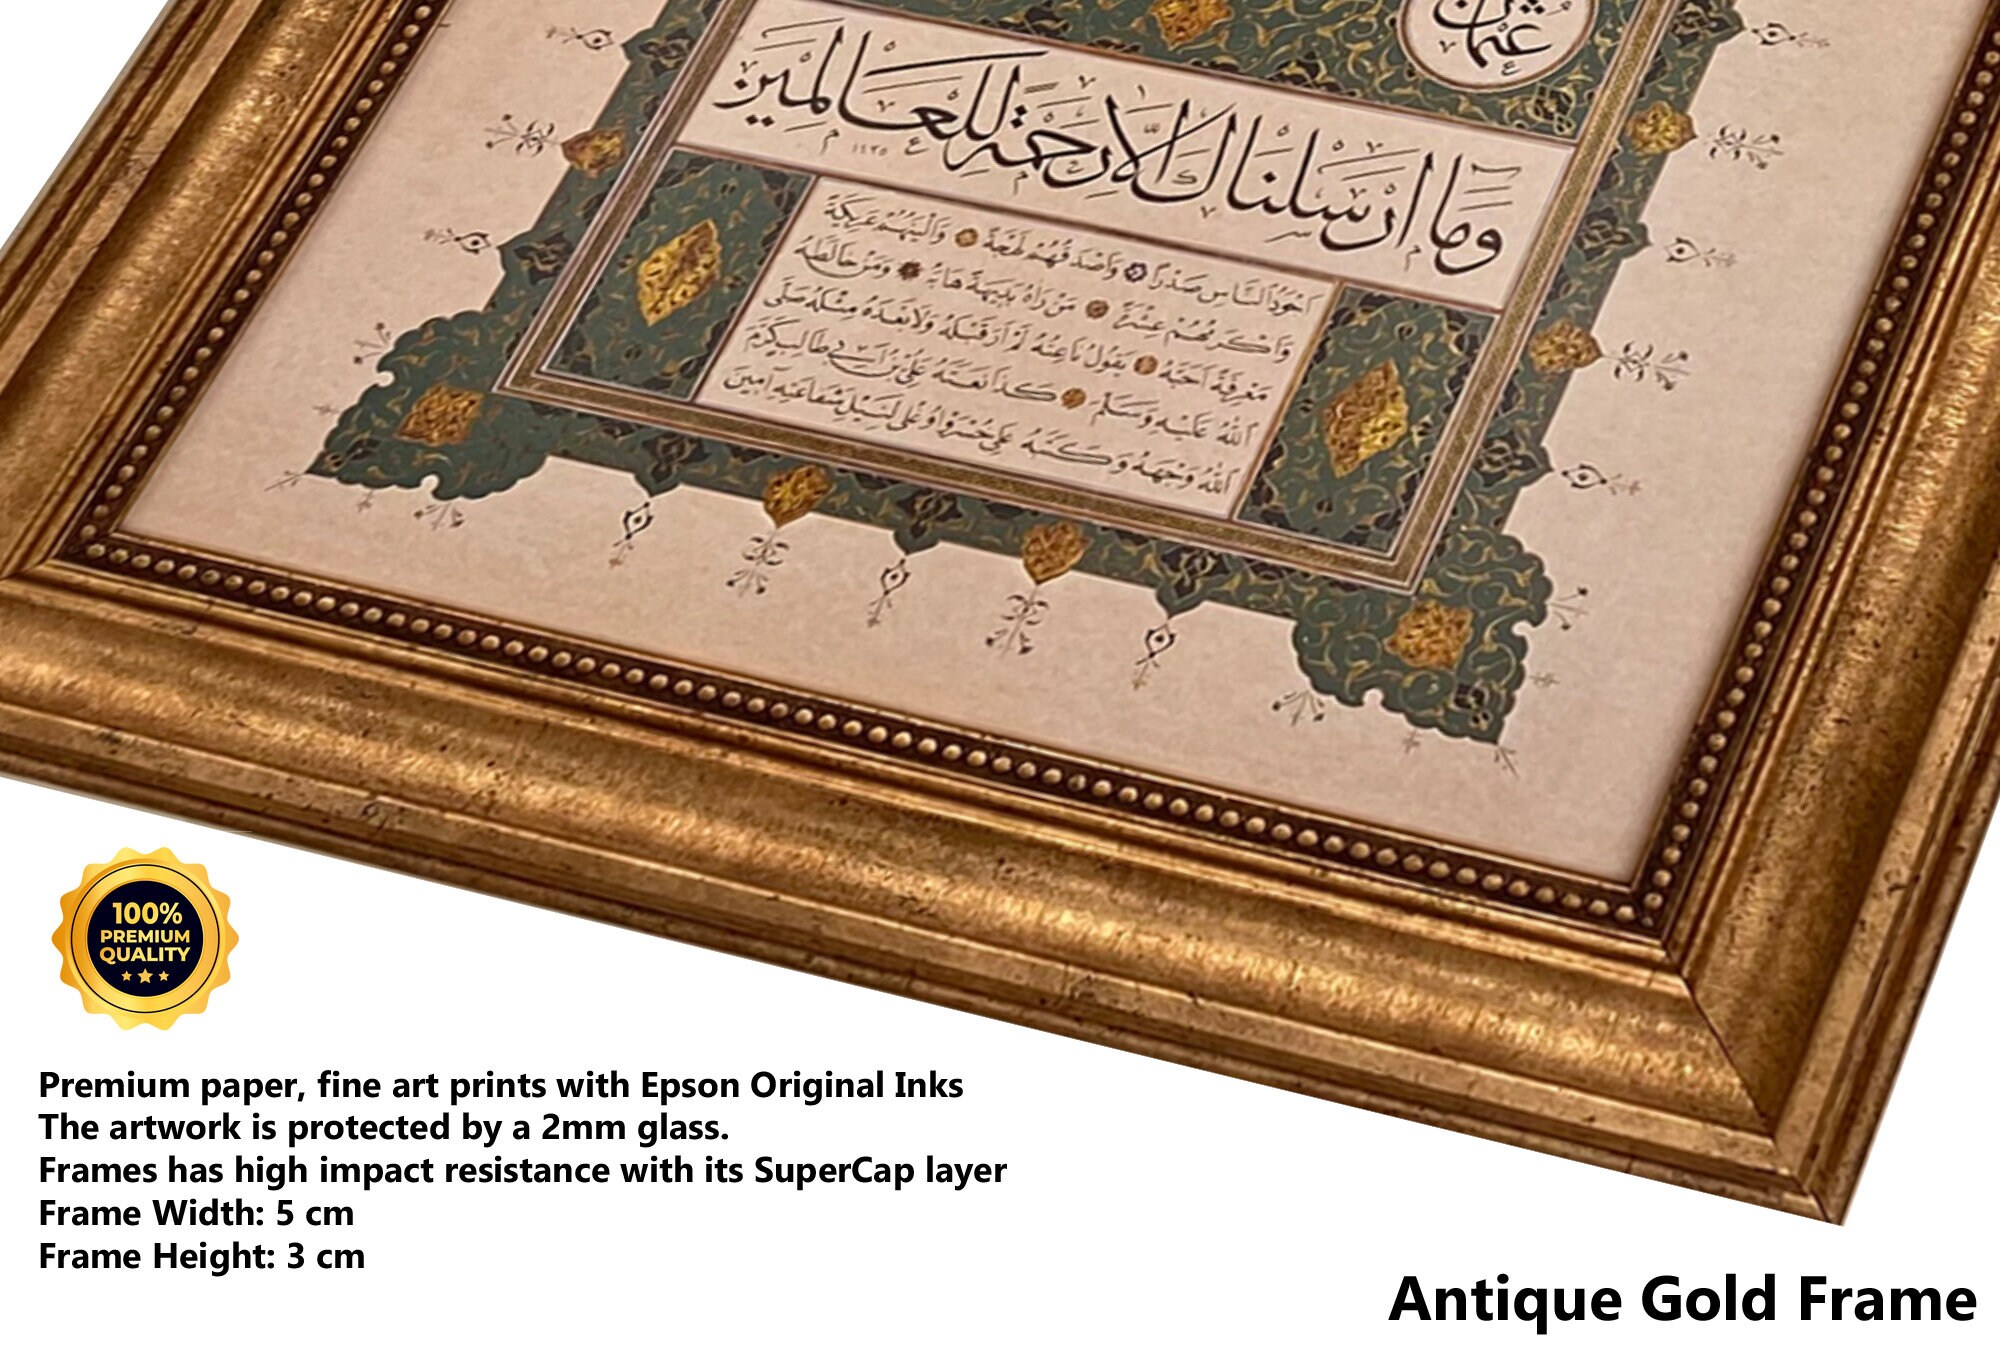 عثمان
وما ارسلناك الا رحمة للعالمين
١٤٢٥
اجود الناس صدرا واصدقهم لهجة والينهم عريكة
واكرمهم عشرة من راه بديهة هابه ومن خالطه
معرفة احبه يقول ناعته لم ار قبله ولا بعده مثله صلى
الله عليه وسلم كذا نعته علي بن ابي طالب كرم
الله وجهه وكتبه علي خسرو اوغلى لنيل شفاعته آمين
100%
PREMIUM
QUALITY
Premium paper, fine art prints with Epson Original Inks
The artwork is protected by a 2mm glass.
Frames has high impact resistance with its SuperCap layer
Frame Width: 5 cm
Frame Height: 3 cm
Antique Gold Frame